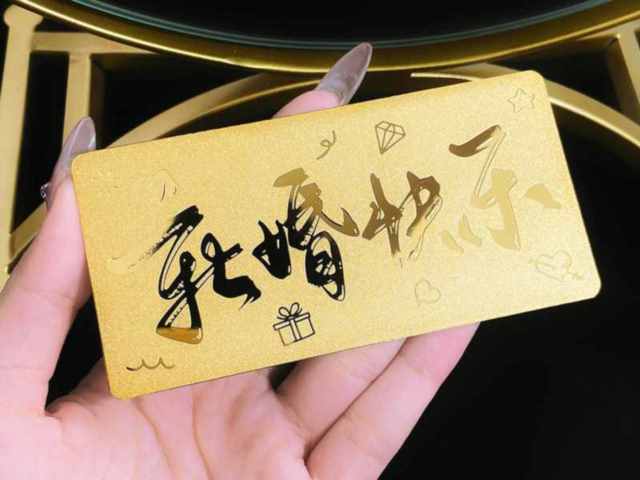 新婚快乐